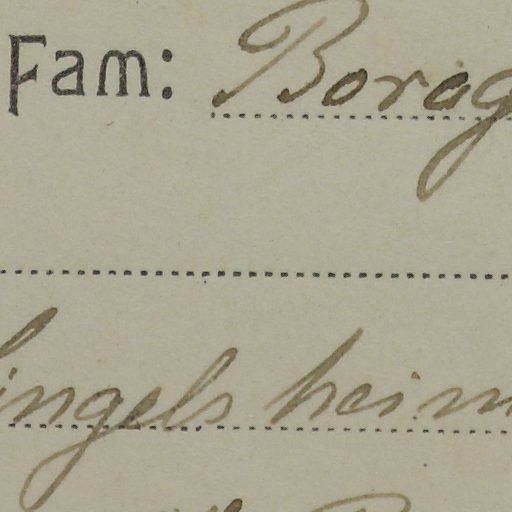 Fam: Borag
ingels heim